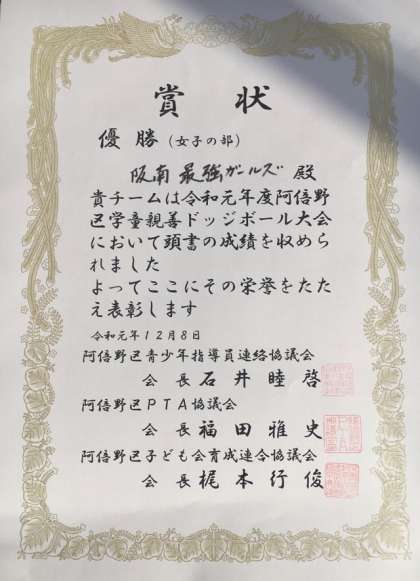 賞状
優勝(女子の部)
阪南 最強ガールズ 殿
貴チームは令和元年度阿倍野
区学童親善ドッジボール大会
において頭書の成績を収めら
れました
よってここにその栄誉をたた
え表彰します
令和元年12月8日
阿倍野区青少年指導員連絡協議会
会長 石井睦啓
阿倍野区PTA協議会
会長 福田雅史
阿倍野区子ども会育成連合協議会
会長 梶本行俊